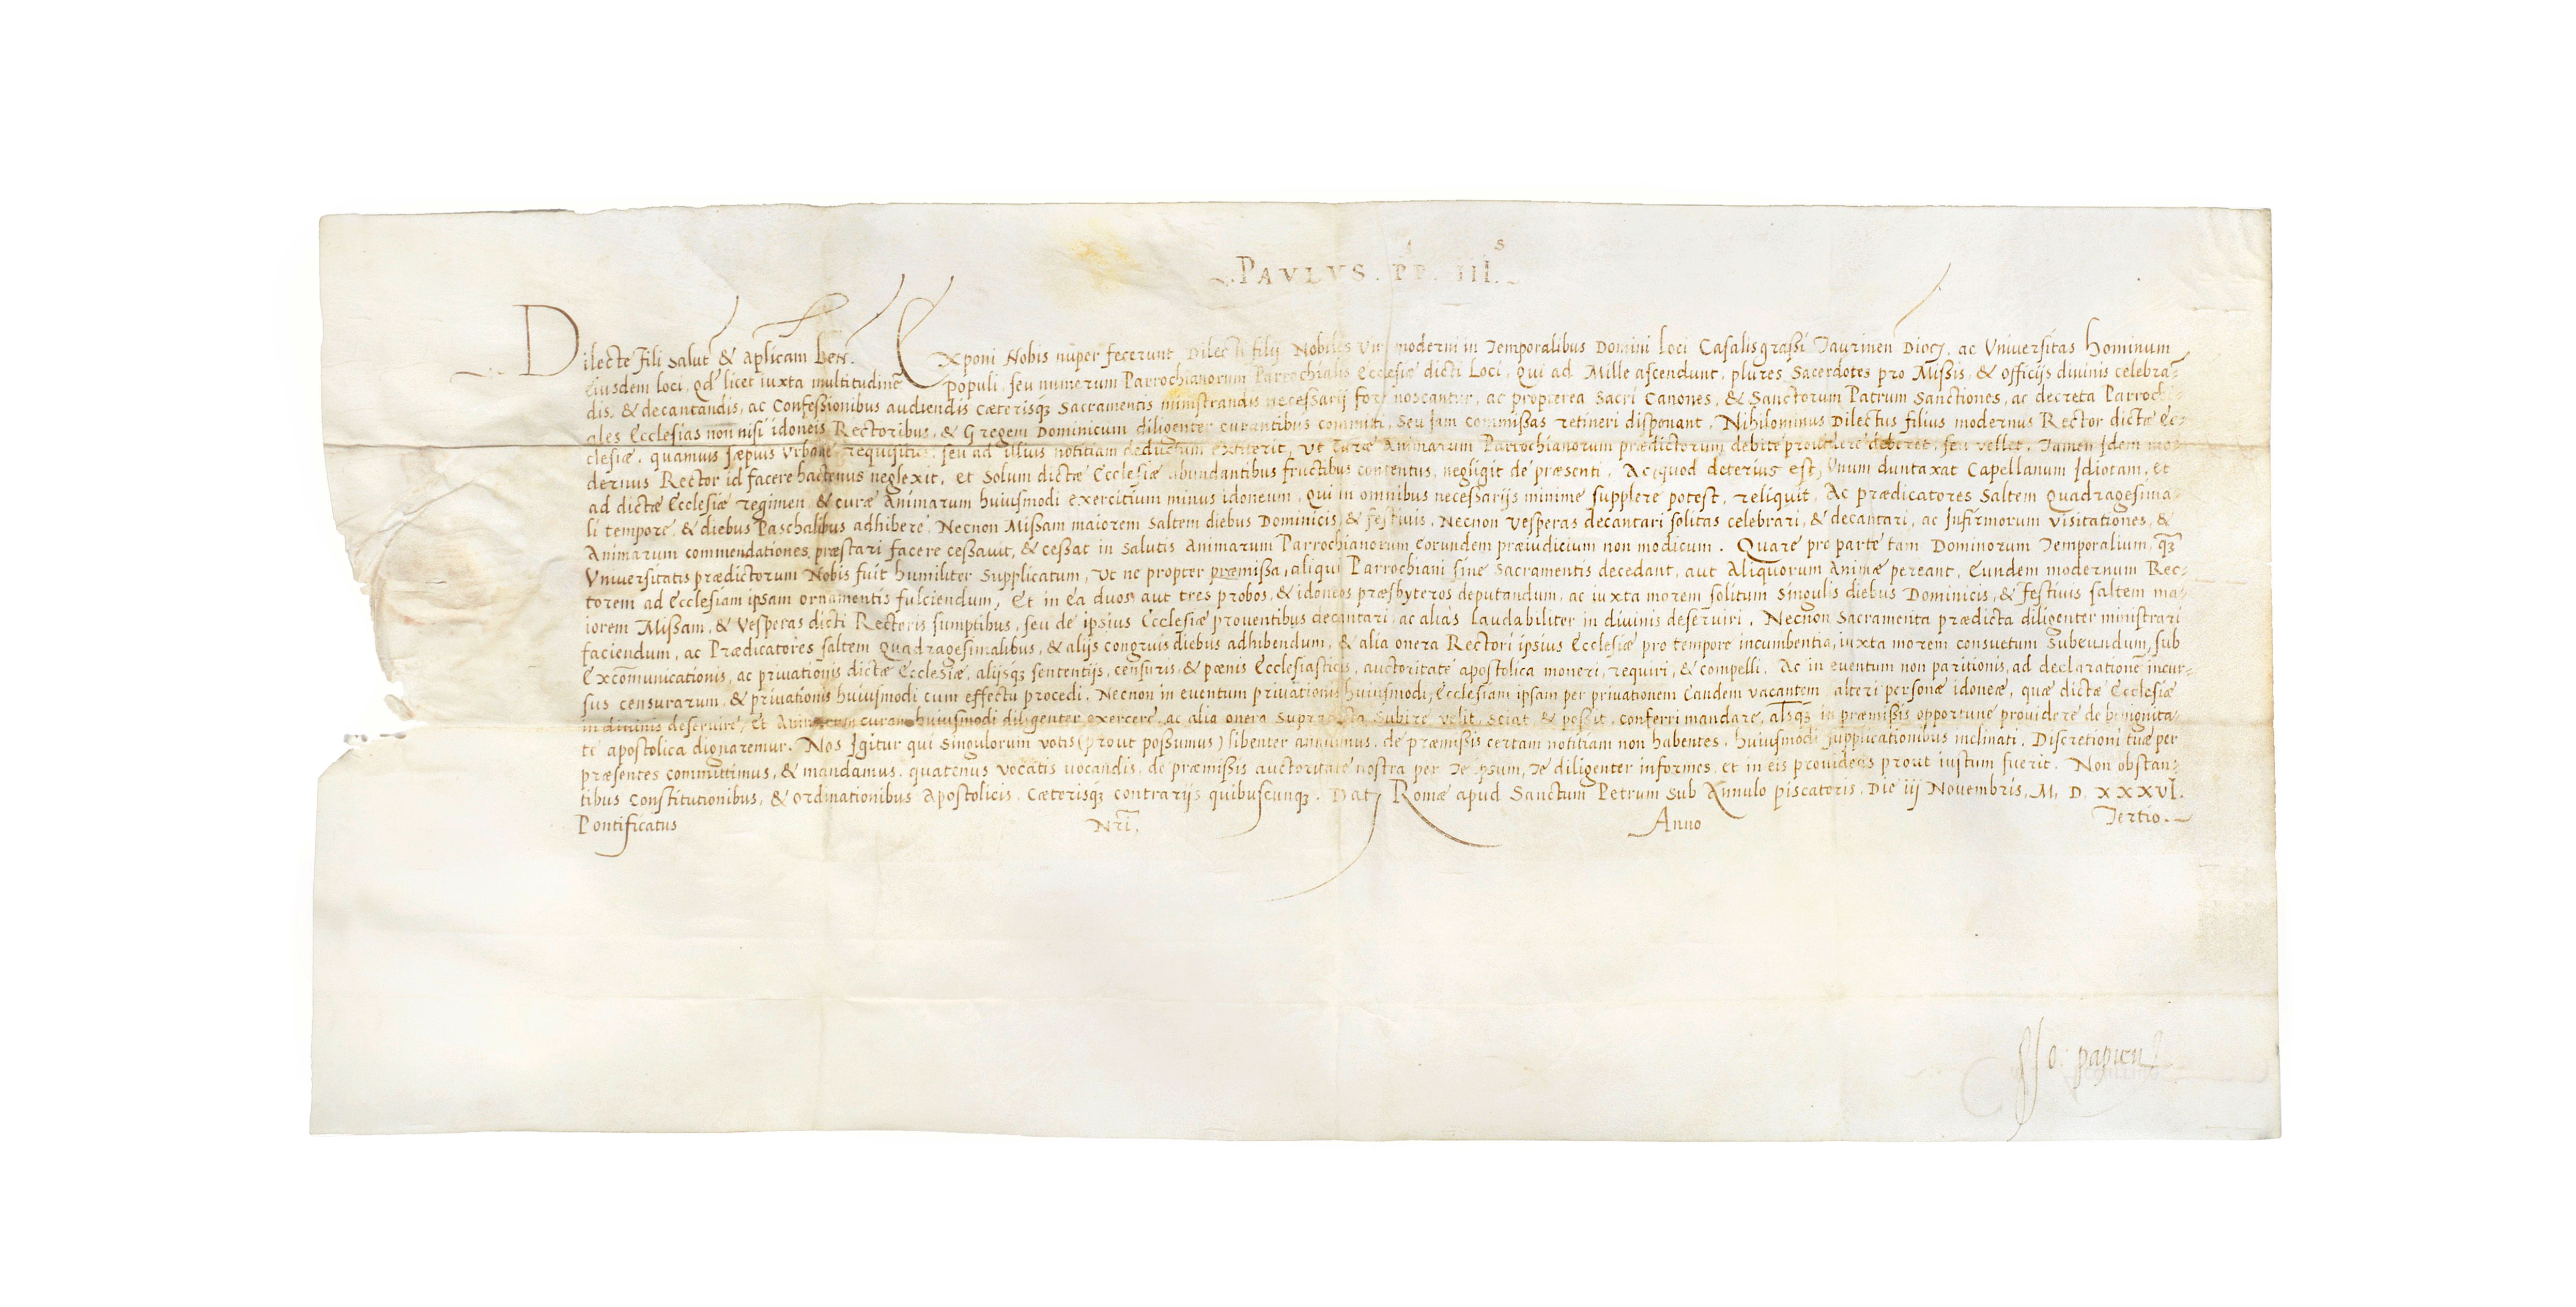 PAVLVS. PP. III.s
Dilecte Fili salut̄ & aplicam ben̄. Exponi Nobis nuper fecerunt Dilecti filij Nobiles Viri moderni in Temporalibus Domini Loci Casalisgrassi Taurinen̄ Dioc̄, ac Vniuersitas Hominum
eiusdem loci, qd̄ licet iuxta multitudinē populi, seu numerum Parrochianorum Parrochialis Ecclesiæ dicti Loci, qui ad Mille ascendunt, plures Sacerdotes pro Missis, & officijs diuinis celebra-
dis, & decantandis, ac Confessionibus audiendis cæterisq̄ Sacramentis ministrandis necessarij fore noscantur, ac propterea Sacri Canones, & Sanctorum Patrum Sanctiones, ac decreta Parrochi-
ales Ecclesias non nisi idoneis Rectoribus, & Gregem Dominicum diligenter curantibus committi, seu iam commissas retineri disponant. Nihilominus Dilectus filius modernus Rector dictæ Ec-
clesiæ, quamuis sæpius vrbane requisitus, seu ad illius notitiam deductum extiterit, vt Curæ Animarum Parrochianorum prædictorum debite prouidere deberet, seu vellet, Tamen idem mo-
dernus Rector id facere hactenus neglexit, et Solum dictæ Ecclesiæ abundantibus fructibus contentus, negligit de præsenti. Ac (quod deterius est) Vnum duntaxat Capellanum Idiotam, et
ad dictæ Ecclesiæ regimen, & curæ Animarum huiusmodi exercitium minus idoneum, qui in omnibus necessarijs minime supplere potest, reliquit, Ac prædicatores Saltem quadragesima-
li tempore, & diebus Paschalibus adhibere, Necnon Missam maiorem saltem diebus Dominicis, & festiuis, Necnon vesperas decantari solitas celebrari, & decantari, ac Infirmorum visitationes, &
Animarum commendationes, præstari facere cessauit, & cessat in salutis animarum Parrochianorum eorundem præiudicium non modicum. Quare pro parte tam Dominorum Temporalium, q̄
Vniuersitatis prædictorum Nobis fuit humiliter supplicatum, vt ne propter præmissa, aliqui Parrochiani sine Sacramentis decedant, aut Aliquorum Animæ pereant, Eundem modernum Rec-
torem ad Ecclesiam ipsam ornamentis fulciendum, Et in Ea duos, aut tres probos, & idoneos præsbyteros deputandum, ac iuxta morem solitum singulis diebus Dominicis, & festiuis saltem ma-
iorem Missam, & Vesperas dicti Rectoris sumptibus, seu de ipsius Ecclesiæ prouentibus decantari, ac alias Laudabiliter in diuinis deseruiri, Necnon Sacramenta prædicta diligenter ministrari
faciendum, ac Prædicatores saltem quadragesimalibus, & alijs congruis diebus adhibendum, & alia onera Rectori ipsius Ecclesiæ pro tempore incumbentia, iuxta morem consuetum subeundum, sub
Excōmunicationis, ac priuationis dictæ Ecclesiæ, alijsq̄ sententijs, censuris, & pœnis Ecclesiasticis, auctoritate apostolica moneri, requiri, & compelli, Ac in euentum non paritionis, ad declarationē incur-
sus censurarum, & priuationis huiusmodi cum effectu procedi. Necnon in euentum priuationis huiusmodi, Ecclesiam ipsam per priuationem Eandem vacantem, alteri personæ idoneæ, quæ dictæ Ecclesiæ
in diuinis deseruire, Et Animarum curam huiusmodi diligenter exercere, ac alia onera Supradicta Subire velit, Sciat, & possit, conferri mandare, aliasq̄ in præmissis opportune prouidere de benignita-
te apostolica dignaremur. Nos Igitur qui singulorum votis (prout possumus) libenter annuimus, de præmissis certam notitiam non habentes, huiusmodi supplicationibus inclinati, Discretioni tuæ per
præsentes committimus, & mandamus, quatenus vocatis uocandis, de præmissis auctoritate nostra per Te ipsum, Te diligenter informes, et in eis prouideas prout iustum fuerit. Non obstan-
tibus Constitutionibus, & ordinationibus Apostolicis, Cæterisq̄ contrarijs quibuscunq̄. Dat̄ Romæ apud Sanctum Petrum Sub Annulo piscatoris, Die iij Nouembris, M, D, XXXVI.
Pontificatus Nr̄i, Anno Tertio.
Jo: papien̄